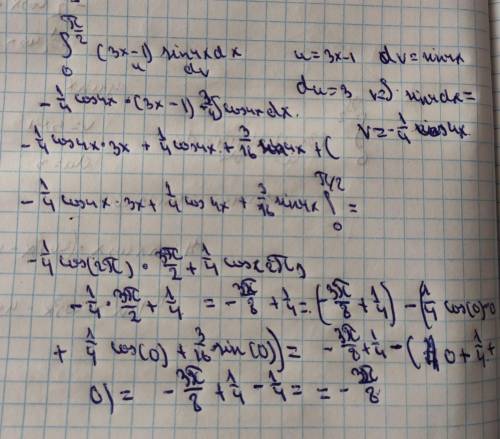 ∫₀^(π/2) (3x-1) sin4x dx    u=3x-1    dv=sin4x
u    dv    du=3    v=∫ sin4x dx=
-1/4 cos4x · (3x-1) 3/4∫cos4x dx.    v=-1/4 cos4x.
-1/4 cos4x·3x + 1/4 cos4x + 3/16 sin4x + C
-1/4 cos4x·3x + 1/4 cos4x + 3/16 sin4x |₀^(π/2) =
-1/4 cos(2π) · 3π/2 + 1/4 cos(2π)
-1/4 · 3π/2 + 1/4 = -3π/8 + 1/4 = (-3π/8 + 1/4) - (-1/4 cos(0)·0
+ 1/4 cos(0) + 3/16 sin(0)) = -3π/8 + 1/4 - (0 + 1/4 +
0) = -3π/8 + 1/4 - 1/4 = = -3π/8